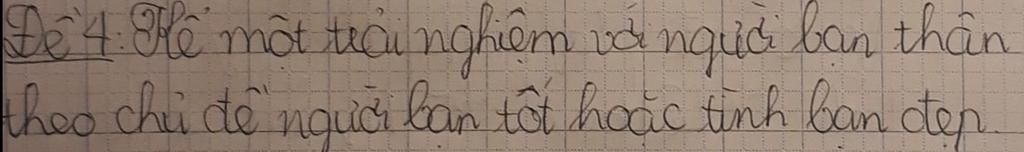 Đề 4: Kể một trải nghiệm với người bạn thân
theo chủ đề người bạn tốt hoặc tình bạn đẹp.